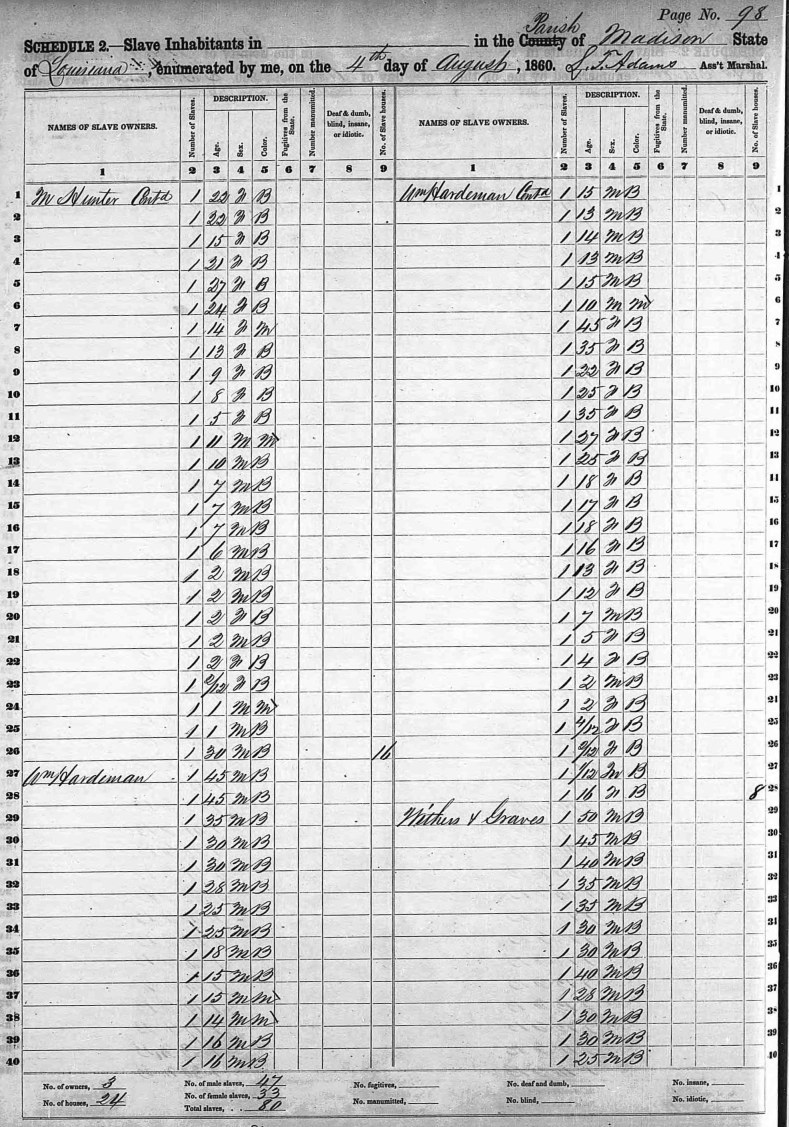 Page No. 98
SCHEDULE 2.—Slave Inhabitants in in the County Parish of Madison State
of Louisiana, enumerated by me, on the 4th day of August, 1860. S. F. Adams Ass't Marshal.
NAMES OF SLAVE OWNERS. Number of Slaves. DESCRIPTION. Age. Sex. Color. Fugitives from the State. Number manumitted. Deaf & dumb, blind, insane, or idiotic. No. of Slave houses. NAMES OF SLAVE OWNERS. Number of Slaves. DESCRIPTION. Age. Sex. Color. Fugitives from the State. Number manumitted. Deaf & dumb, blind, insane, or idiotic. No. of Slave houses.
1 2 3 4 5 6 7 8 9 1 2 3 4 5 6 7 8 9
1 M Hunter Contd 1 22 F B Wm Hardeman Contd 1 15 M B 1
2 1 22 F B 1 13 M B 2
3 1 15 F B 1 14 M B 3
4 1 21 F B 1 13 M B 4
5 1 27 F B 1 15 M B 5
6 1 24 F B 1 10 M M 6
7 1 14 F M 1 45 F B 7
8 1 13 F B 1 35 F B 8
9 1 9 F B 1 22 F B 9
10 1 8 F B 1 25 F B 10
11 1 5 F B 1 35 F B 11
12 1 11 M M 1 27 F B 12
13 1 10 M B 1 25 F B 13
14 1 7 M B 1 18 F B 14
15 1 7 M B 1 17 F B 15
16 1 7 M B 1 18 F B 16
17 1 6 M B 1 16 F B 17
18 1 2 M B 1 13 F B 18
19 1 2 M B 1 12 F B 19
20 1 2 F B 1 7 M B 20
21 1 2 M B 1 5 F B 21
22 1 2 F B 1 4 F B 22
23 1 2/12 F B 1 2 M B 23
24 1 1 M M 1 2 F B 24
25 1 1 M B 1 4/12 F B 25
26 1 30 M B 16 1 /12 F B 26
27 Wm Hardeman 1 45 M B 1 1/12 M B 27
28 1 45 M B 1 16 F B 8 28
29 1 35 M B Withers & Graves 1 50 M B 29
30 1 30 M B 1 45 M B 30
31 1 30 M B 1 40 M B 31
32 1 28 M B 1 35 M B 32
33 1 25 M B 1 35 M B 33
34 1 25 M B 1 30 M B 34
35 1 18 M B 1 30 M B 35
36 1 15 M B 1 40 M B 36
37 1 15 M M 1 28 M B 37
38 1 14 M M 1 30 M B 38
39 1 16 M B 1 30 M B 39
40 1 16 M B 1 25 M B 40
No. of owners, 3 No. of male slaves, 47 No. fugitives, No. of deaf and dumb, No. insane,
No. of houses, 24 No. of female slaves, 33 No. manumitted, No. blind, No. idiotic,
Total slaves, 80